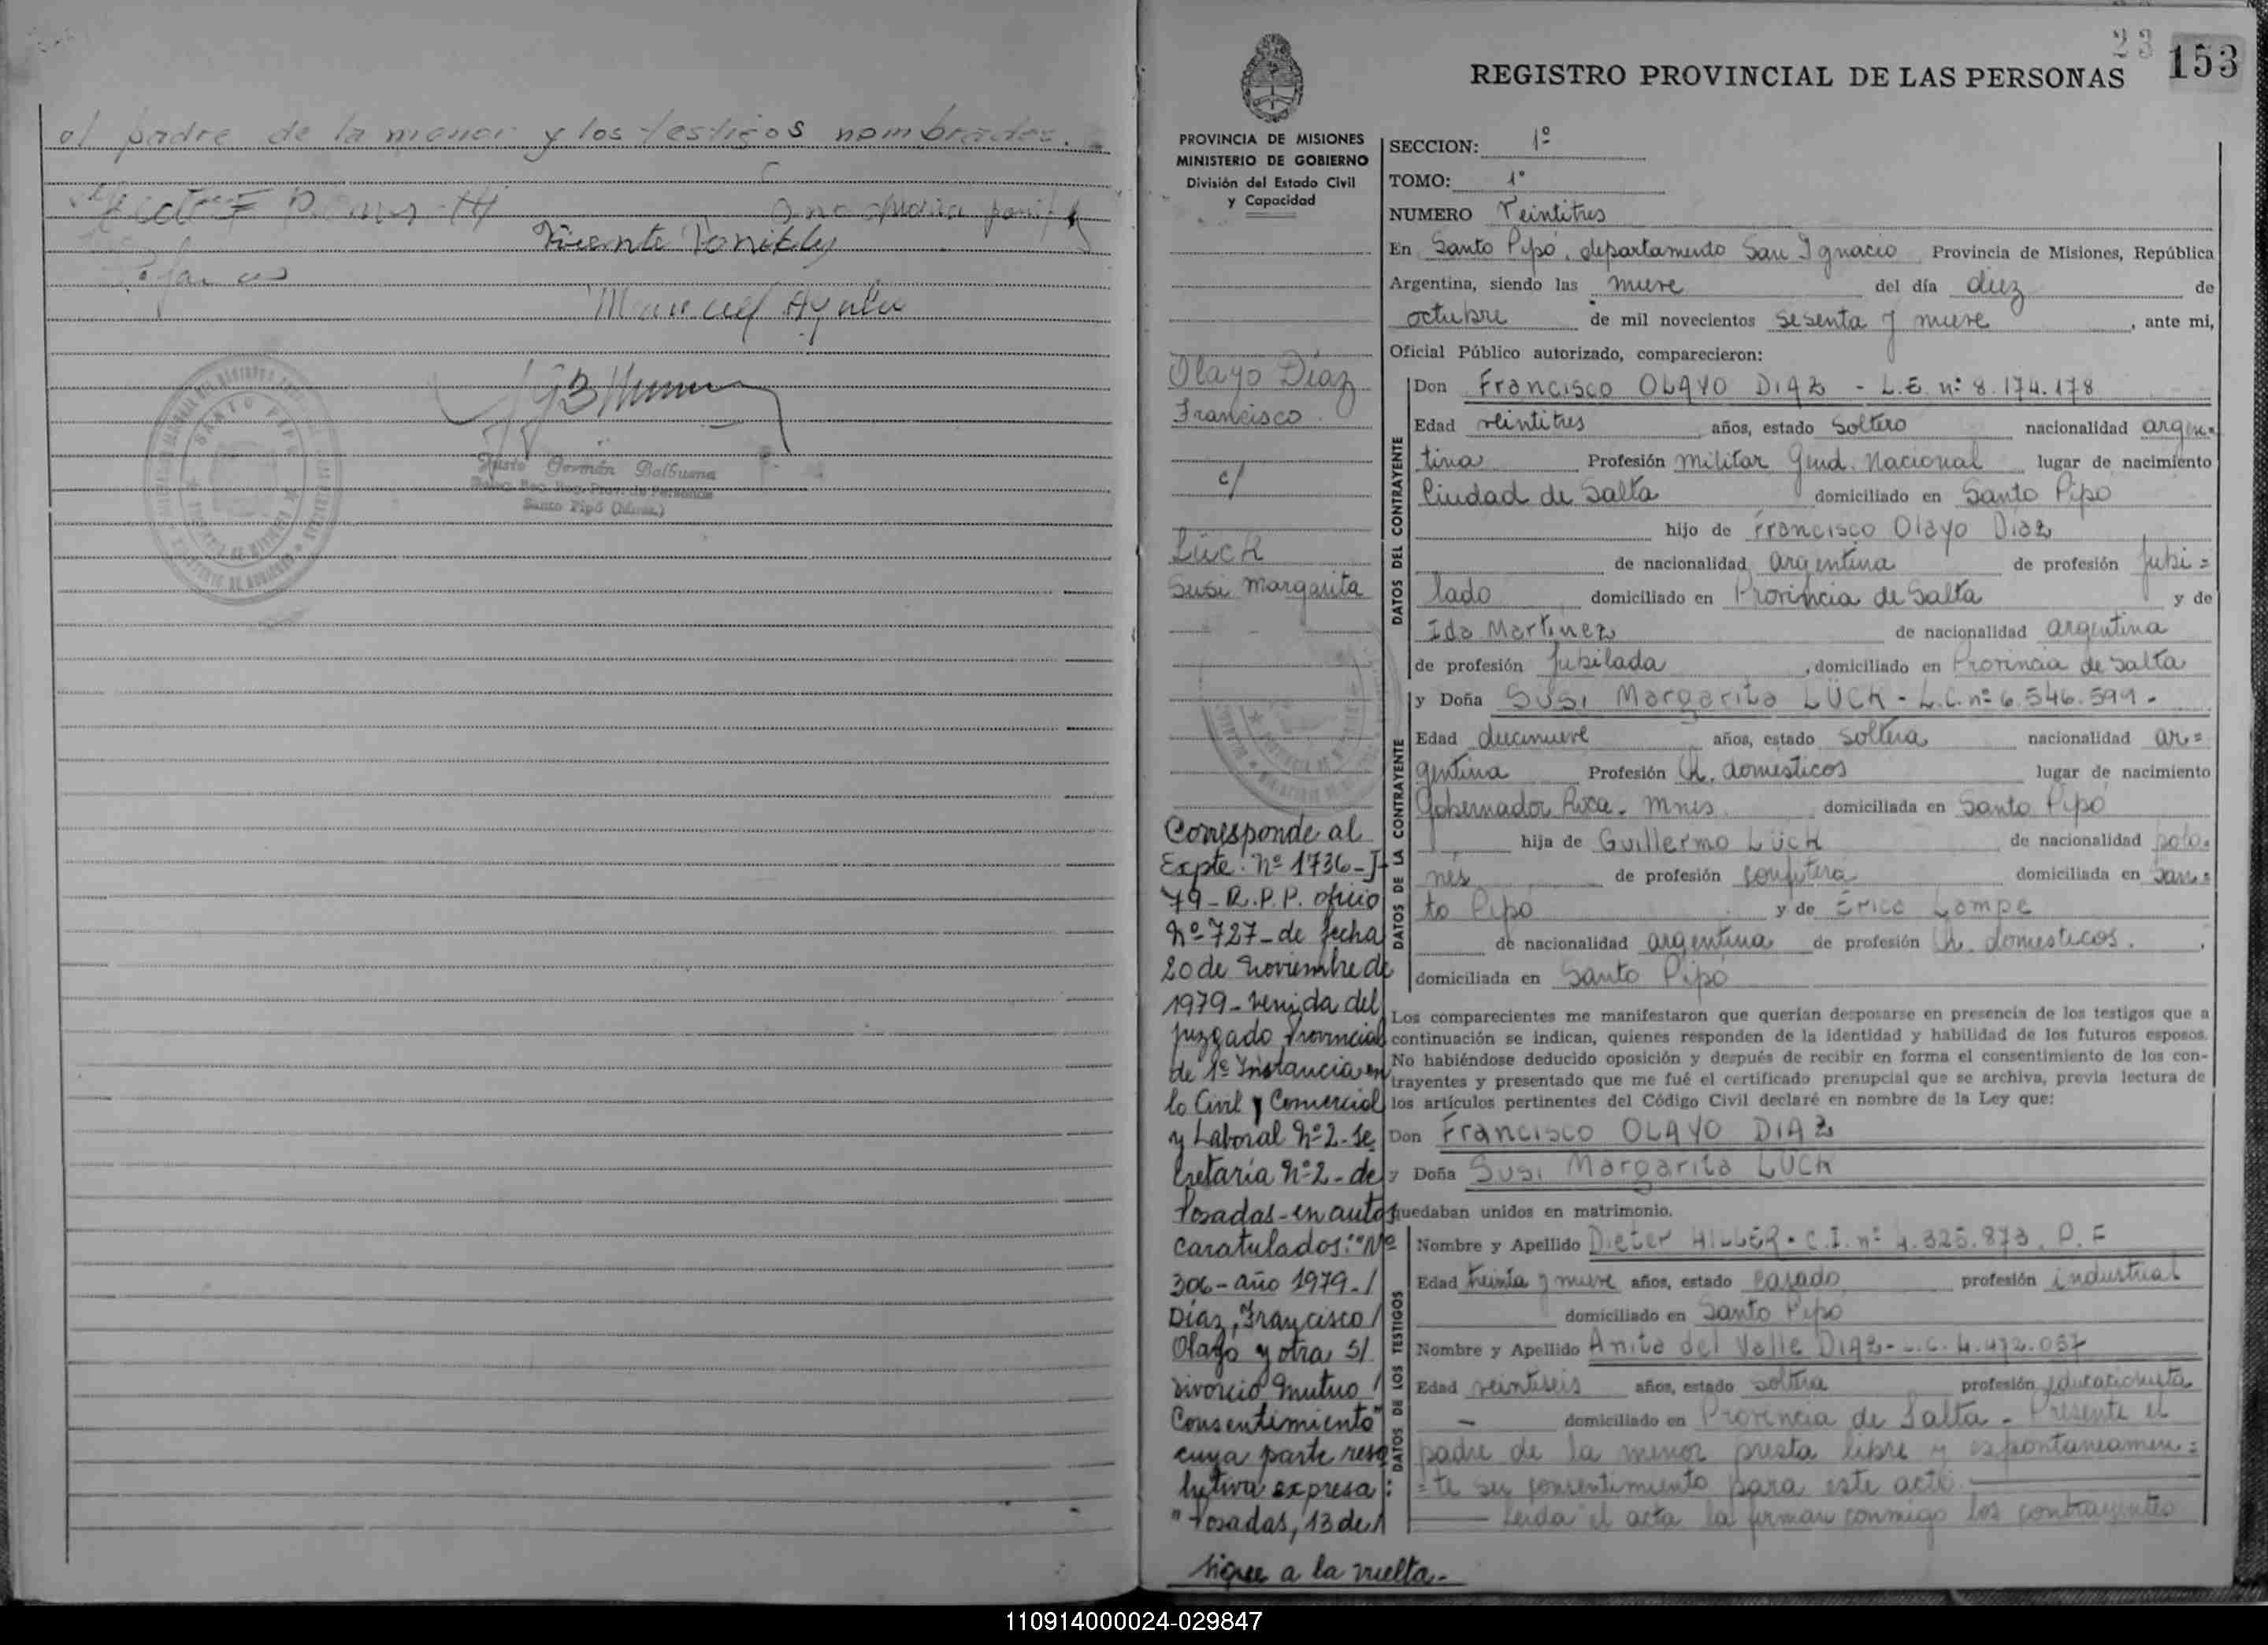 el padre de la menor y los testigos nombrados.
Vicente
Manuel Ayala
Justo Germán Balbuena
Santo Pipó
23
153
REGISTRO PROVINCIAL DE LAS PERSONAS
PROVINCIA DE MISIONES
MINISTERIO DE GOBIERNO
División del Estado Civil
y Capacidad
Olayo Díaz
Francisco
c/
Lück
Susi Margarita
Corresponde al
Expte. Nº 1736-J-
79-R.P.P. oficio
Nº 727-de fecha
20 de Noviembre de
1979-venida del
Juzgado Provincial
de 1º Instancia en
lo Civil y Comercial
y Laboral Nº 2-Se
cretaría Nº 2-de
Posadas-en autos
caratulados: "Nº
306-año 1979-/
Díaz, Francisco/
Olayo y otra s/
Divorcio Mutuo /
Consentimiento"
cuya parte reso
lutiva expresa:
"Posadas, 13 de/
sigue a la vuelta.-
SECCION: 1º
TOMO: 1º
NUMERO Veintitres
En Santo Pipó, departamento San Ignacio Provincia de Misiones, República
Argentina, siendo las nueve del día diez de
octubre de mil novecientos sesenta y nueve, ante mi,
Oficial Público autorizado, comparecieron:
DATOS DEL CONTRAYENTE
Don Francisco OLAYO DIAZ - L.E. nº 8.174.178
Edad veintitres años, estado soltero nacionalidad argen=
tina Profesión militar Gend. Nacional lugar de nacimiento
Ciudad de Salta domiciliado en Santo Pipó
hijo de Francisco Olayo Diaz
de nacionalidad argentina de profesión jubi=
lado domiciliado en Provincia de Salta y de
Ida Martinez de nacionalidad argentina
de profesión jubilada, domiciliado en Provincia de Salta
DATOS DE LA CONTRAYENTE
y Doña Susi Margarita LÜCK - L.C. nº 6.546.599.-
Edad diecinueve años, estado soltera nacionalidad ar=
gentina Profesión Q. domesticos lugar de nacimiento
Gobernador Roca. Mnes. domiciliada en Santo Pipó
hija de Guillermo Lück de nacionalidad pola=
nés de profesión domiciliada en San=
to Pipó y de Erica Lampe
de nacionalidad argentina de profesión Q. domesticos.,
domiciliada en Santo Pipó
Los comparecientes me manifestaron que querían desposarse en presencia de los testigos que a
continuación se indican, quienes responden de la identidad y habilidad de los futuros esposos.
No habiéndose deducido oposición y después de recibir en forma el consentimiento de los con-
trayentes y presentado que me fué el certificado prenupcial que se archiva, previa lectura de
los artículos pertinentes del Código Civil declaré en nombre de la Ley que:
Don Francisco OLAYO DIAZ
y Doña Susi Margarita LÜCK
quedaban unidos en matrimonio.
DATOS DE LOS TESTIGOS
Nombre y Apellido Dieter HILLER - C.I. nº 4.325.873. P.F
Edad treinta y nueve años, estado casado profesión industrial
domiciliado en Santo Pipó
Nombre y Apellido Anita del Valle DIAZ - L.C. 4.472.057
Edad veintiseis años, estado soltera profesión educacionista
- domiciliado en Provincia de Salta - Presente el
padre de la menor presta libre y espontaneamen=
=te su consentimiento para este acto.
Leida el acta la firman conmigo los contrayentes
110914000024-029847